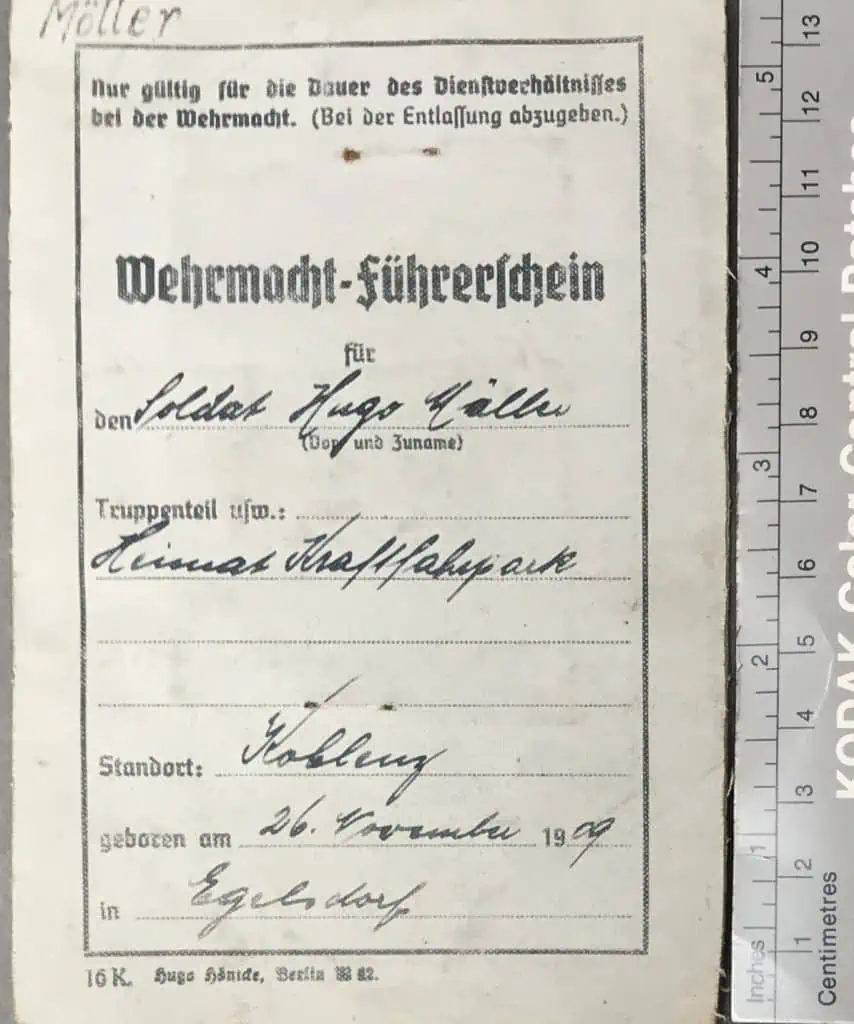 Möller
Nur gültig für die Dauer des Dienstverhältnisses
bei der Wehrmacht. (Bei der Entlassung abzugeben.)
Wehrmacht-Führerschein
für
den Soldat Hugo Möller
(Vor- und Zuname)
Truppenteil usw.:
Heimat Kraftfahrpark
Standort: Koblenz
geboren am 26. November 1909
in Egelsdorf
16 K. Hugo Hänicke, Berlin
Inches
1
2
3
4
5
Centimetres
1
2
3
4
5
6
7
8
9
10
11
12
13
KODAK Color Control Patches